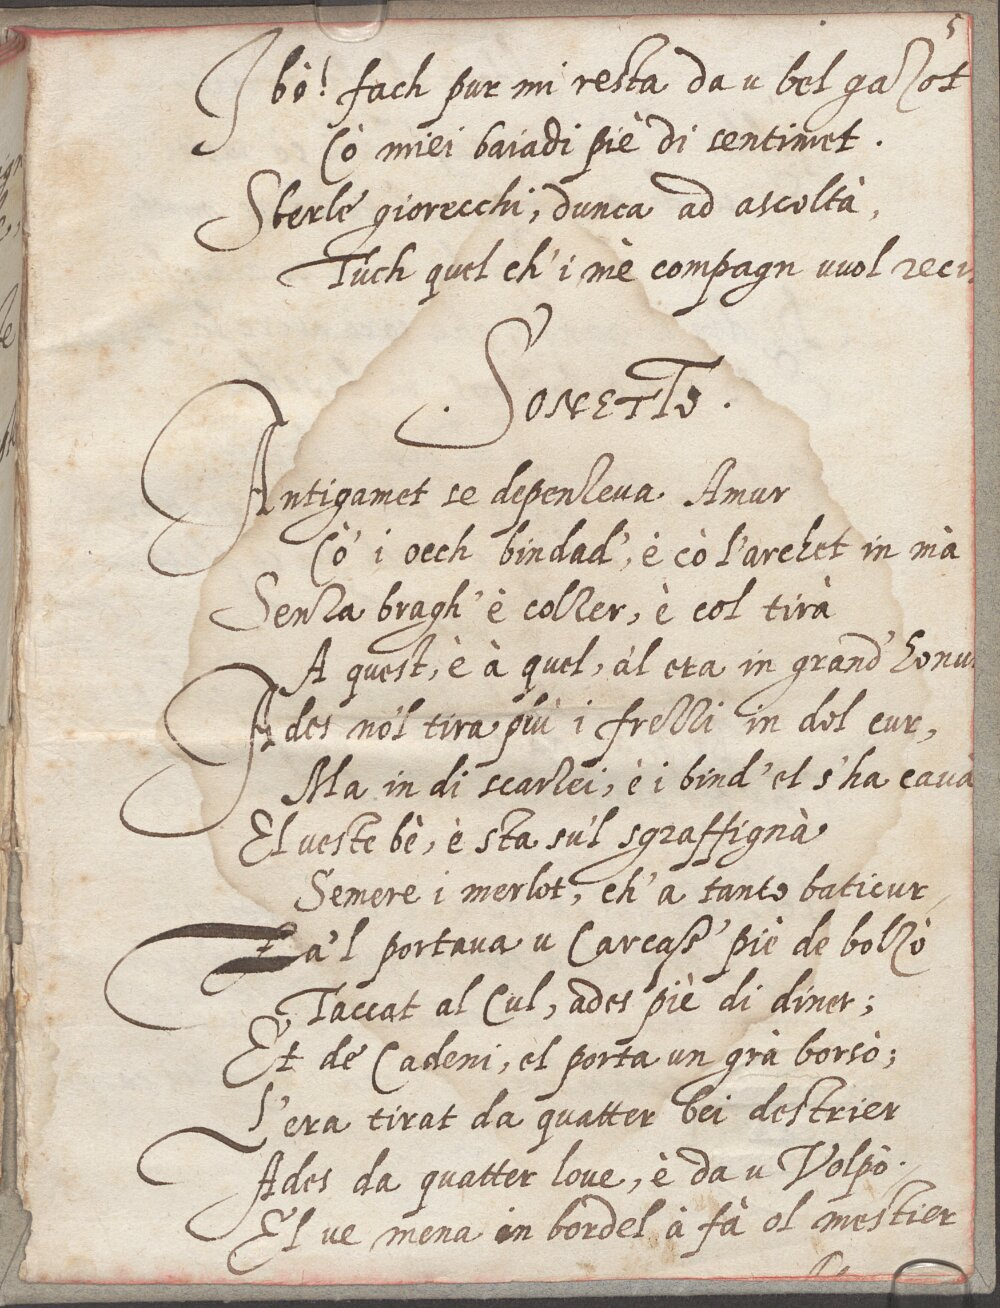 5
Ibò! fach pur mi resta da u bel gazòt
Cò miei baiadi piè di sentimet.
Sberlé giorecchi, dunca ad ascoltà,
Tùch quel ch'i mè compagn vuol reci
Sonetto.
Antigamet se depenzeva Amur
Cò i occh bindad', è cò l'archet in mà
Senza bragh' è colzer, è col tirà
A quest, è à quel, àl era in grand' honu
Ades nòl tira più i frezzi in dol cur,
Ma in di scarzei, è i bind' el s'ha cavà
El veste bè, è sta sù'l sgraffignà
Semere i merlot, ch'a tanto baticur
Za'l portava u Carcass' piè de bolzò
Taccat al Cul, ades piè di diner;
Et de Cadeni, el porta un grà borsò;
L'era tirat da quatter bei destrier
Ades da quatter love, è da u Volpò.
El ve mena in bordel à fà ol mestier